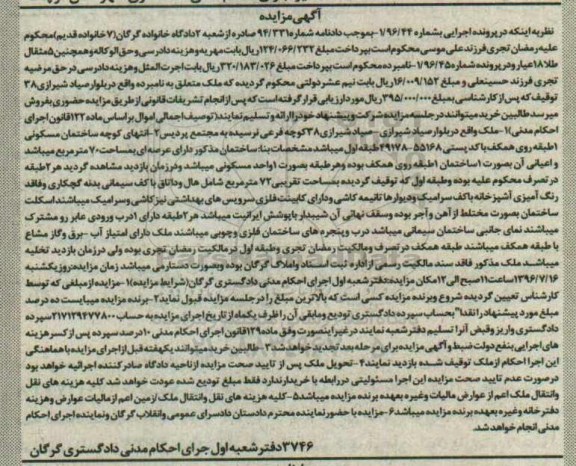 آگهی مزایده
نظر به اینکه در پرونده اجرایی بشماره ۱/۹۶/۴۴-بموجب دادنامه شماره ۹۴/۳۳۱ صادره از شعبه ۲ دادگاه خانواده گرگان (۷ خانواده قدیم) محکوم
علیه رمضان تجری فرزند علی موسی محکوم است بپرداخت مبلغ ۱۲۴/۰۶۶/۲۳۲ ریال بابت مهریه و هزینه دادرسی و حق الوکاله و همچنین ۵ مثقال
طلا ۱۸ عیار و در پرونده شماره ۱/۹۶/۴۵- نامبرده محکوم است بپرداخت مبلغ ۳۲۰/۱۸۳/۰۲۶ ریال بابت اجرت المثل و هزینه دادرسی در حق مرضیه
تجری فرزند حسینعلی و مبلغ ۱۶/۰۰۹/۱۵۲ ریال بابت نیم عشر دولتی محکوم گردیده که ملک متعلق به نامبرده واقع در بلوار صیاد شیرازی ۳۸
توقیف که پس از کارشناسی به مبلغ ۳۹۵/۰۰۰/۰۰۰ ریال مورد ارزیابی قرار گرفته است که پس از انجام تشریفات قانونی از طریق مزایده حضوری بفروش
میرسد طالبین خرید میتوانند در جلسه مزایده شرکت و پیشنهاد خود را ارائه و تسلیم نمایند (توصیف اجمالی اموال بر اساس ماده ۱۲۲ قانون اجرای
احکام مدنی) ۱- ملک واقع در بلوار صیاد شیرازی - صیاد شیرازی ۳۸ کوچه فرعی نرسیده به مجتمع پردیس ۲- انتهای کوچه ساختمان مسکونی
۱ طبقه روی همکف با کد پستی ۵۵۱۶۸-۴۹۱۷۸ طبقه اول میباشد مشخصات بنا: ساختمان مذکور دارای عرصه ای بمساحت ۷۰ متر مربع میباشد
و اعیانی آن بصورت ۱ ساختمان ۱ طبقه روی همکف بوده و هر طبقه بصورت ۱ واحد مسکونی میباشد و در زمان بازدید مشاهده گردید هر ۲ طبقه
در تصرف محکوم علیه بوده و طبقه اول که توقیف گردیده بمساحت تقریبی ۷۲ متر مربع شامل هال و دو اتاق با کف سیمانی بدنه گچکاری و فاقد
رنگ آمیزی آشپزخانه با کف سرامیک و دیوارها تا نیمه کاشی و دارای کابینت فلزی سرویس های بهداشتی نیز کاشی و سرامیک میباشند اسکلت
ساختمان بصورت مختلط از آهن و آجر بوده و سقف نهائی آن شیبدار با پوشش ایرانیت میباشد هر ۲ طبقه دارای ۱ درب ورودی عابر رو مشترک
میباشند نمای جانبی ساختمان سیمانی میباشد درب و پنجره های ساختمان فلزی و چوبی میباشند ملک دارای امتیاز آب -برق و گاز مشاع
با طبقه همکف میباشند طبقه همکف در تصرف و مالکیت رمضان تجری و طبقه اول در مالکیت رمضان تجری بوده ولی در زمان بازدید تخلیه
میباشد ملک مذکور فاقد سند مالکیت رسمی از اداره ثبت اسناد و املاک گرگان بوده و بصورت دستارمی میباشد زمان مزایده: روز یکشنبه
۱۳۹۶/۷/۱۶ ساعت ۱۱ صبح الی ۱۲ مکان مزایده: دفتر شعبه اول اجرای احکام مدنی دادگستری گرگان (شرایط مزایده) ۱- مزایده از مبلغی که توسط
کارشناس تعیین گردیده شروع و برنده مزایده کسی است که بالاترین مبلغ را در جلسه مزایده قبول نماید ۲- برنده مزایده میبایست ده درصد
مبلغ مورد پیشنهاد را نقدا" بحساب سپرده دادگستری تودیع و مابقی آن را ظرف یکماه از تاریخ اجرای مزایده به حساب ۲۱۷۱۲۹۴۷۷۸۰۰ سپرده
دادگستری واریز و قبض آنرا تسلیم دفتر شعبه نمایند در غیر اینصورت وفق ماده ۱۲۹ قانون اجرای احکام مدنی ۱۰ درصد سپرده پس از کسر هزینه
های اجرایی بنفع دولت ضبط و آگهی مزایده برای مرحله بعد تجدید خواهد شد ۳- طالبین خرید میتوانند یکهفته قبل از اجرای مزایده با هماهنگی
این اجرا احکام از ملک توقیف شده بازدید نمایند ۴- تحویل ملک پس از تایید صحت مزایده از ناحیه دادگاه صادر کننده اجرائیه خواهد بود
در صورت عدم تایید صحت مزایده این اجرا مسئولیتی در رابطه با خریدار ندارد فقط مبلغ تودیع شده عودت خواهد شد کلیه هزینه های نقل
وانتقال ملک اعم از عوارض مالیات وغیره بعهده برنده مزایده میباشد ۵- کلیه هزینه های نقل وانتقال ملک از مین اعم از مالیات عوارض و هزینه
دفترخانه وغیره بعهده برنده مزایده میباشد ۶- مزایده با حضور نماینده محترم دادستان دادسرای عمومی و انقلاب گرگان و نماینده اجرای احکام
مدنی انجام خواهد شد.
۳۷۴۶ دفتر شعبه اول جرای احکام مدنی دادگستری گرگان